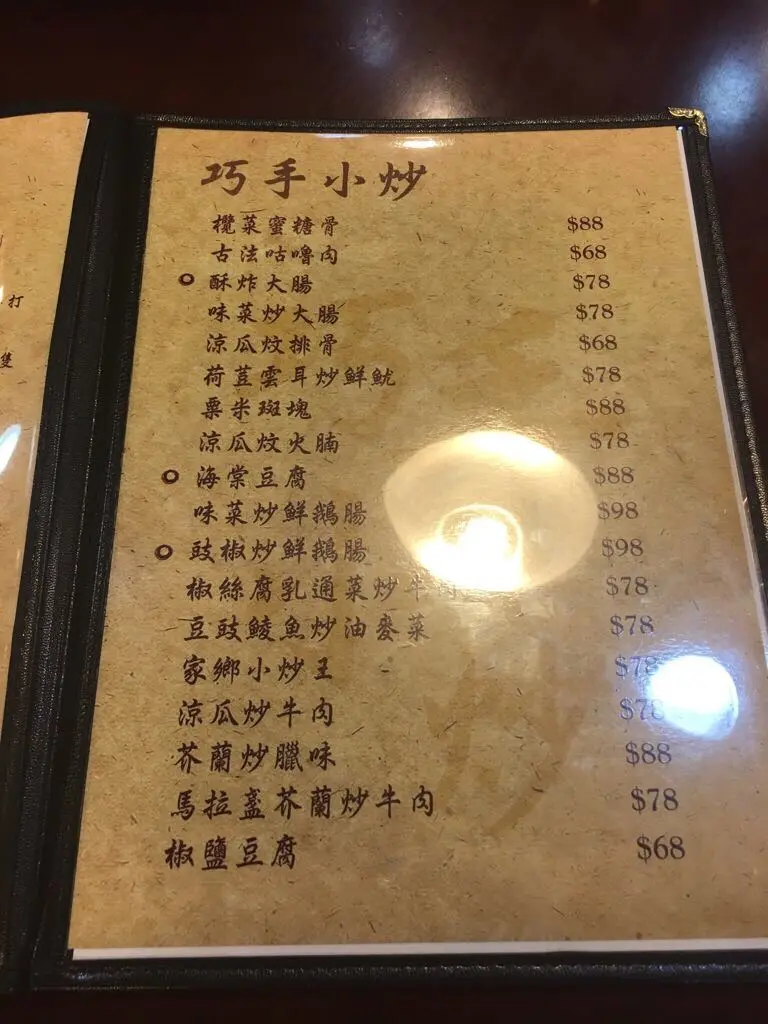 打
隻
巧手小炒
欖菜蜜糖骨 $88
古法咕嚕肉 $68
酥炸大腸 $78
味菜炒大腸 $78
涼瓜炆排骨 $68
荷荳雲耳炒鮮魷 $78
粟米斑塊 $88
涼瓜炆火腩 $78
海棠豆腐 $88
味菜炒鮮鵝腸 $98
豉椒炒鮮鵝腸 $98
椒絲腐乳通菜炒牛肉 $78
豆豉鯪魚炒油麥菜 $78
家鄉小炒王 $78
涼瓜炒牛肉 $78
芥蘭炒臘味 $88
馬拉盞芥蘭炒牛肉 $78
椒鹽豆腐 $68